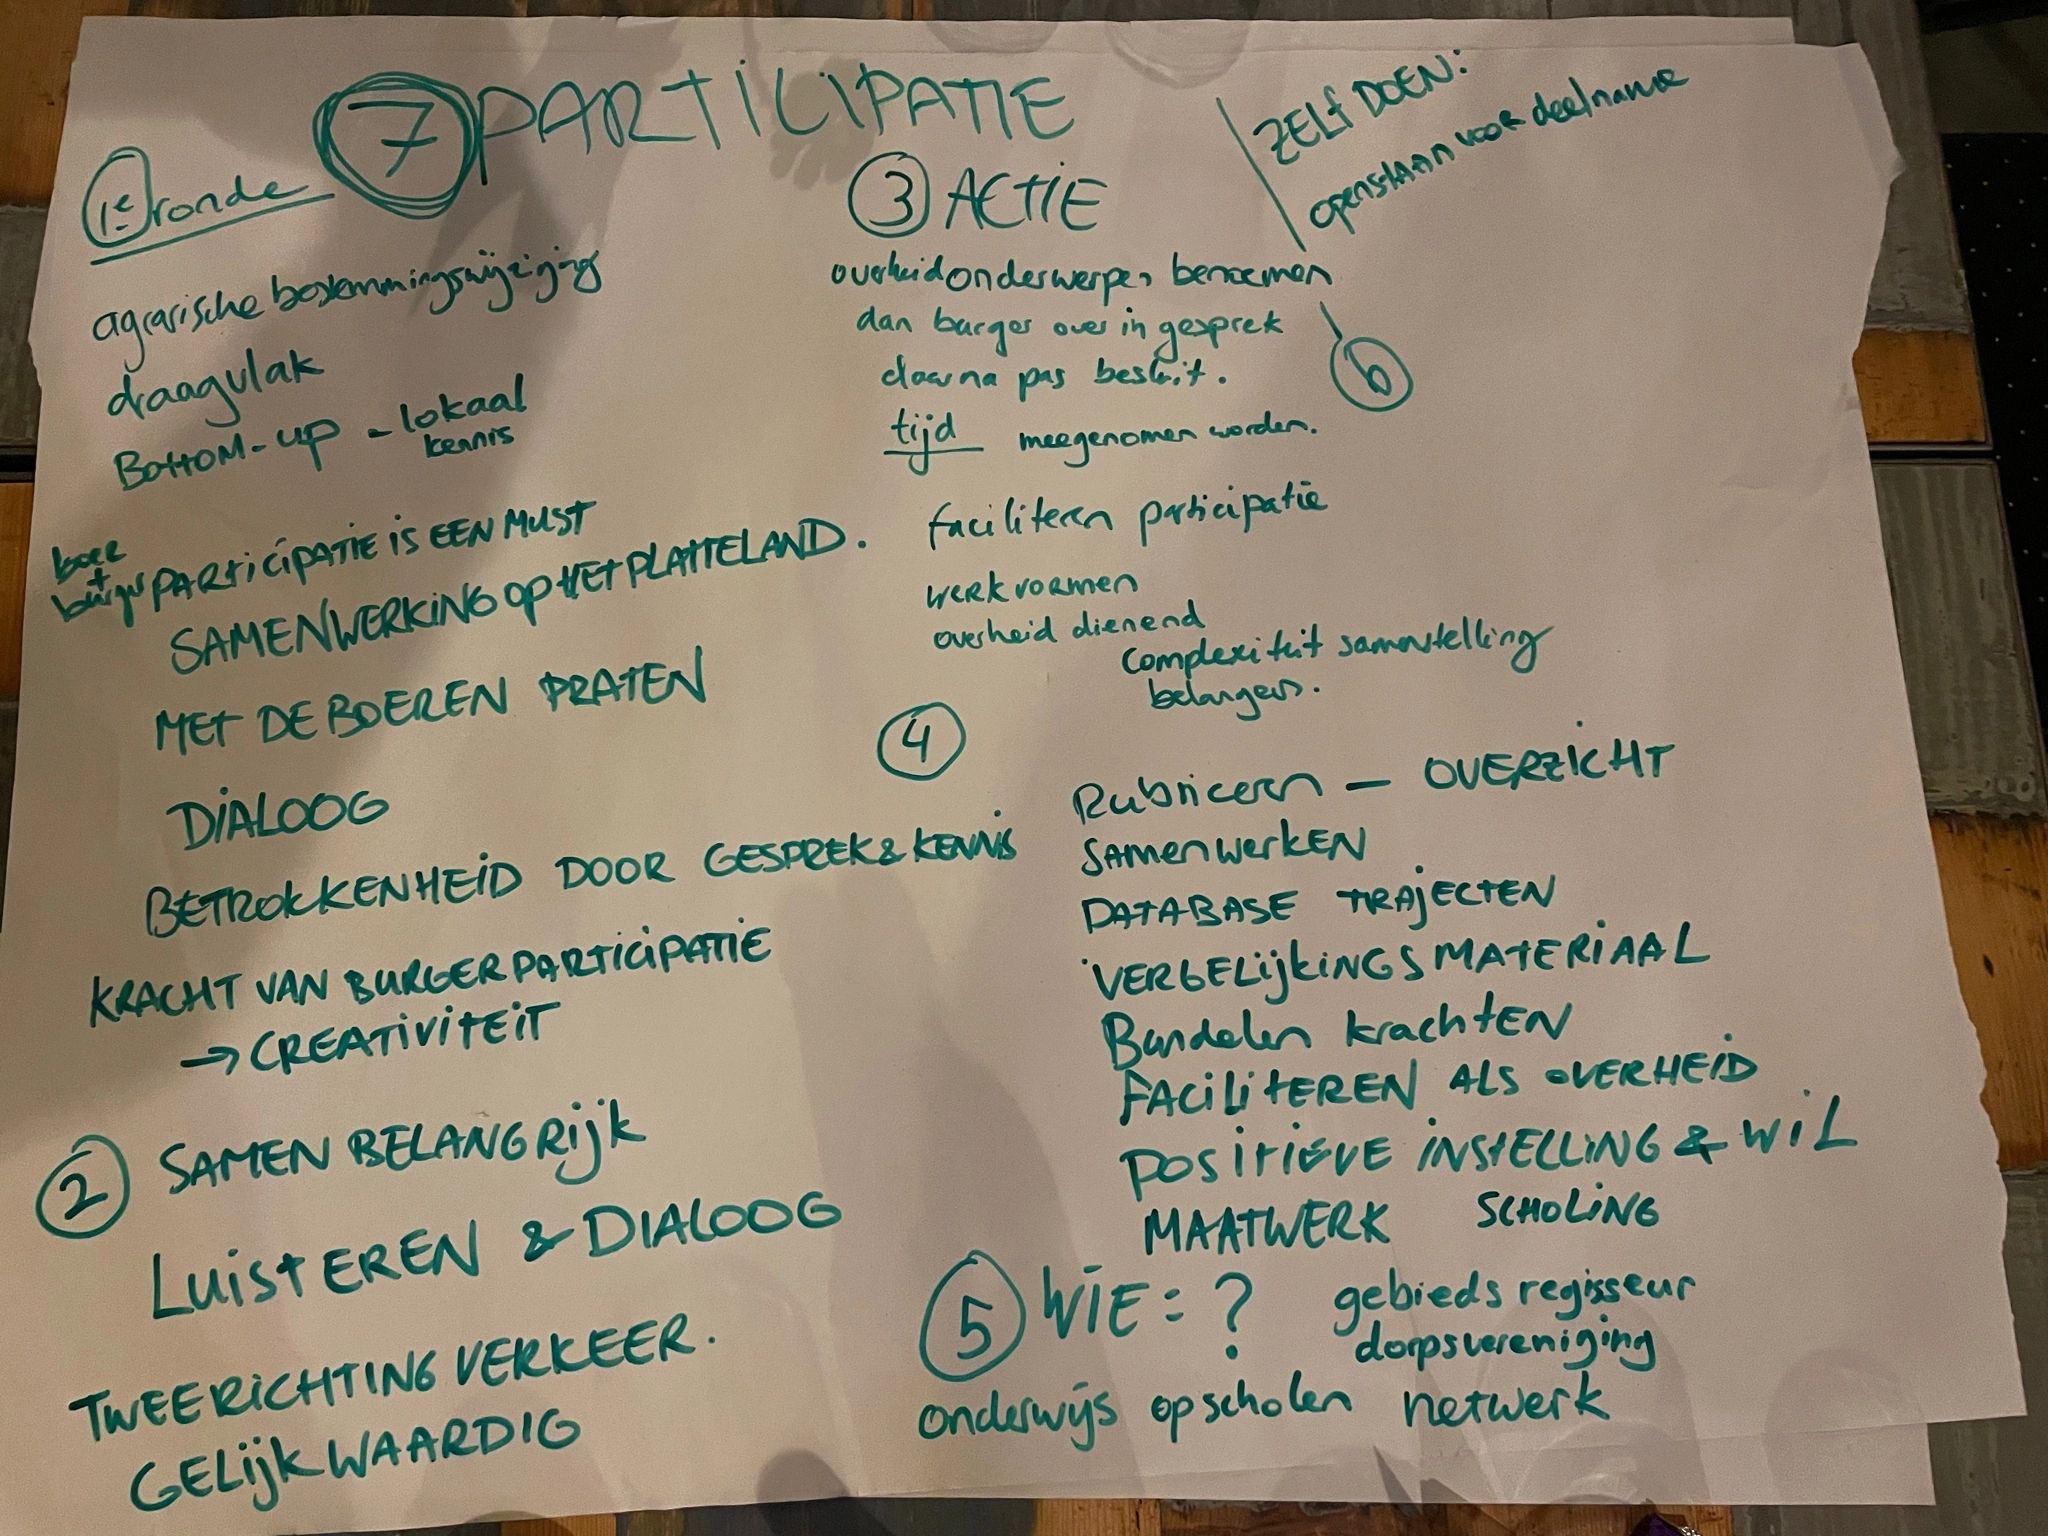 7 PARTICIPATIE
1e ronde
agrarische bestemmingswijziging
draagvlak
BOTTOM-UP - lokaal
kennis
boer
+
burger PARTICIPATIE IS EEN MUST
SAMENWERKING OP HET PLATTELAND.
MET DE BOEREN PRATEN
DIALOOG
BETROKKENHEID DOOR GESPREK & KENNIS
KRACHT VAN BURGERPARTICIPATIE
→ CREATIVITEIT
2 SAMEN BELANGRIJK
LUISTEREN & DIALOOG
TWEERICHTINGVERKEER.
GELIJKWAARDIG
3 ACTIE
overheid onderwerpen benoemen
dan burger over in gesprek
daarna pas besluit.
tijd meegenomen worden.
faciliteren participatie
werkvormen
overheid dienend
complexiteit samenstelling
belangen.
4
Rubriceren - OVERZICHT
SAMENWERKEN
DATABASE TRAJECTEN
VERGELIJKINGSMATERIAAL
Bundelen krachten
FACILITEREN ALS OVERHEID
POSITIEVE INSTELLING & WIL
MAATWERK SCHOLING
5 WIE = ? gebiedsregisseur
dorpsvereniging
onderwijs op scholen netwerk
6
ZELF DOEN:
openstaan voor deelname